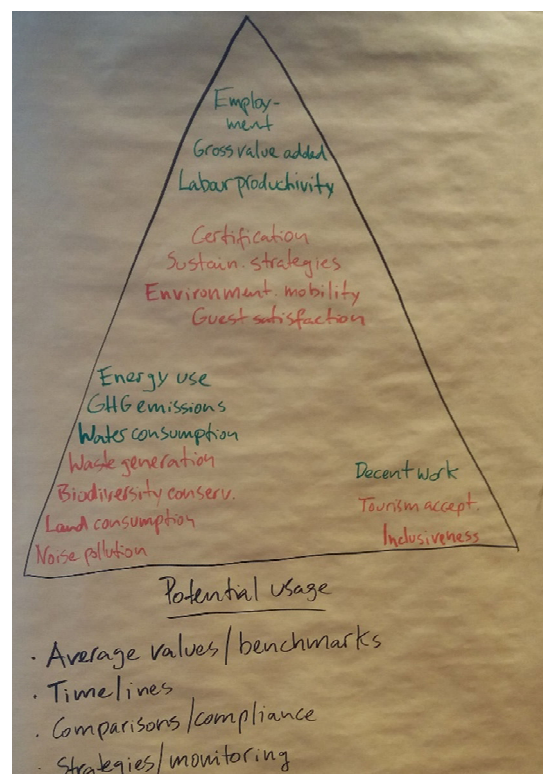 Employ-
ment
Gross value added
Labour productivity
Certification
Sustain. strategies
Environment. mobility
Guest satisfaction
Energy use
GHG emissions
Water consumption
Waste generation
Biodiversity conserv.
Land consumption
Noise pollution
Decent work
Tourism accept.
Inclusiveness
Potential usage
· Average values/benchmarks
· Timelines
· Comparisons/compliance
· Strategies/monitoring